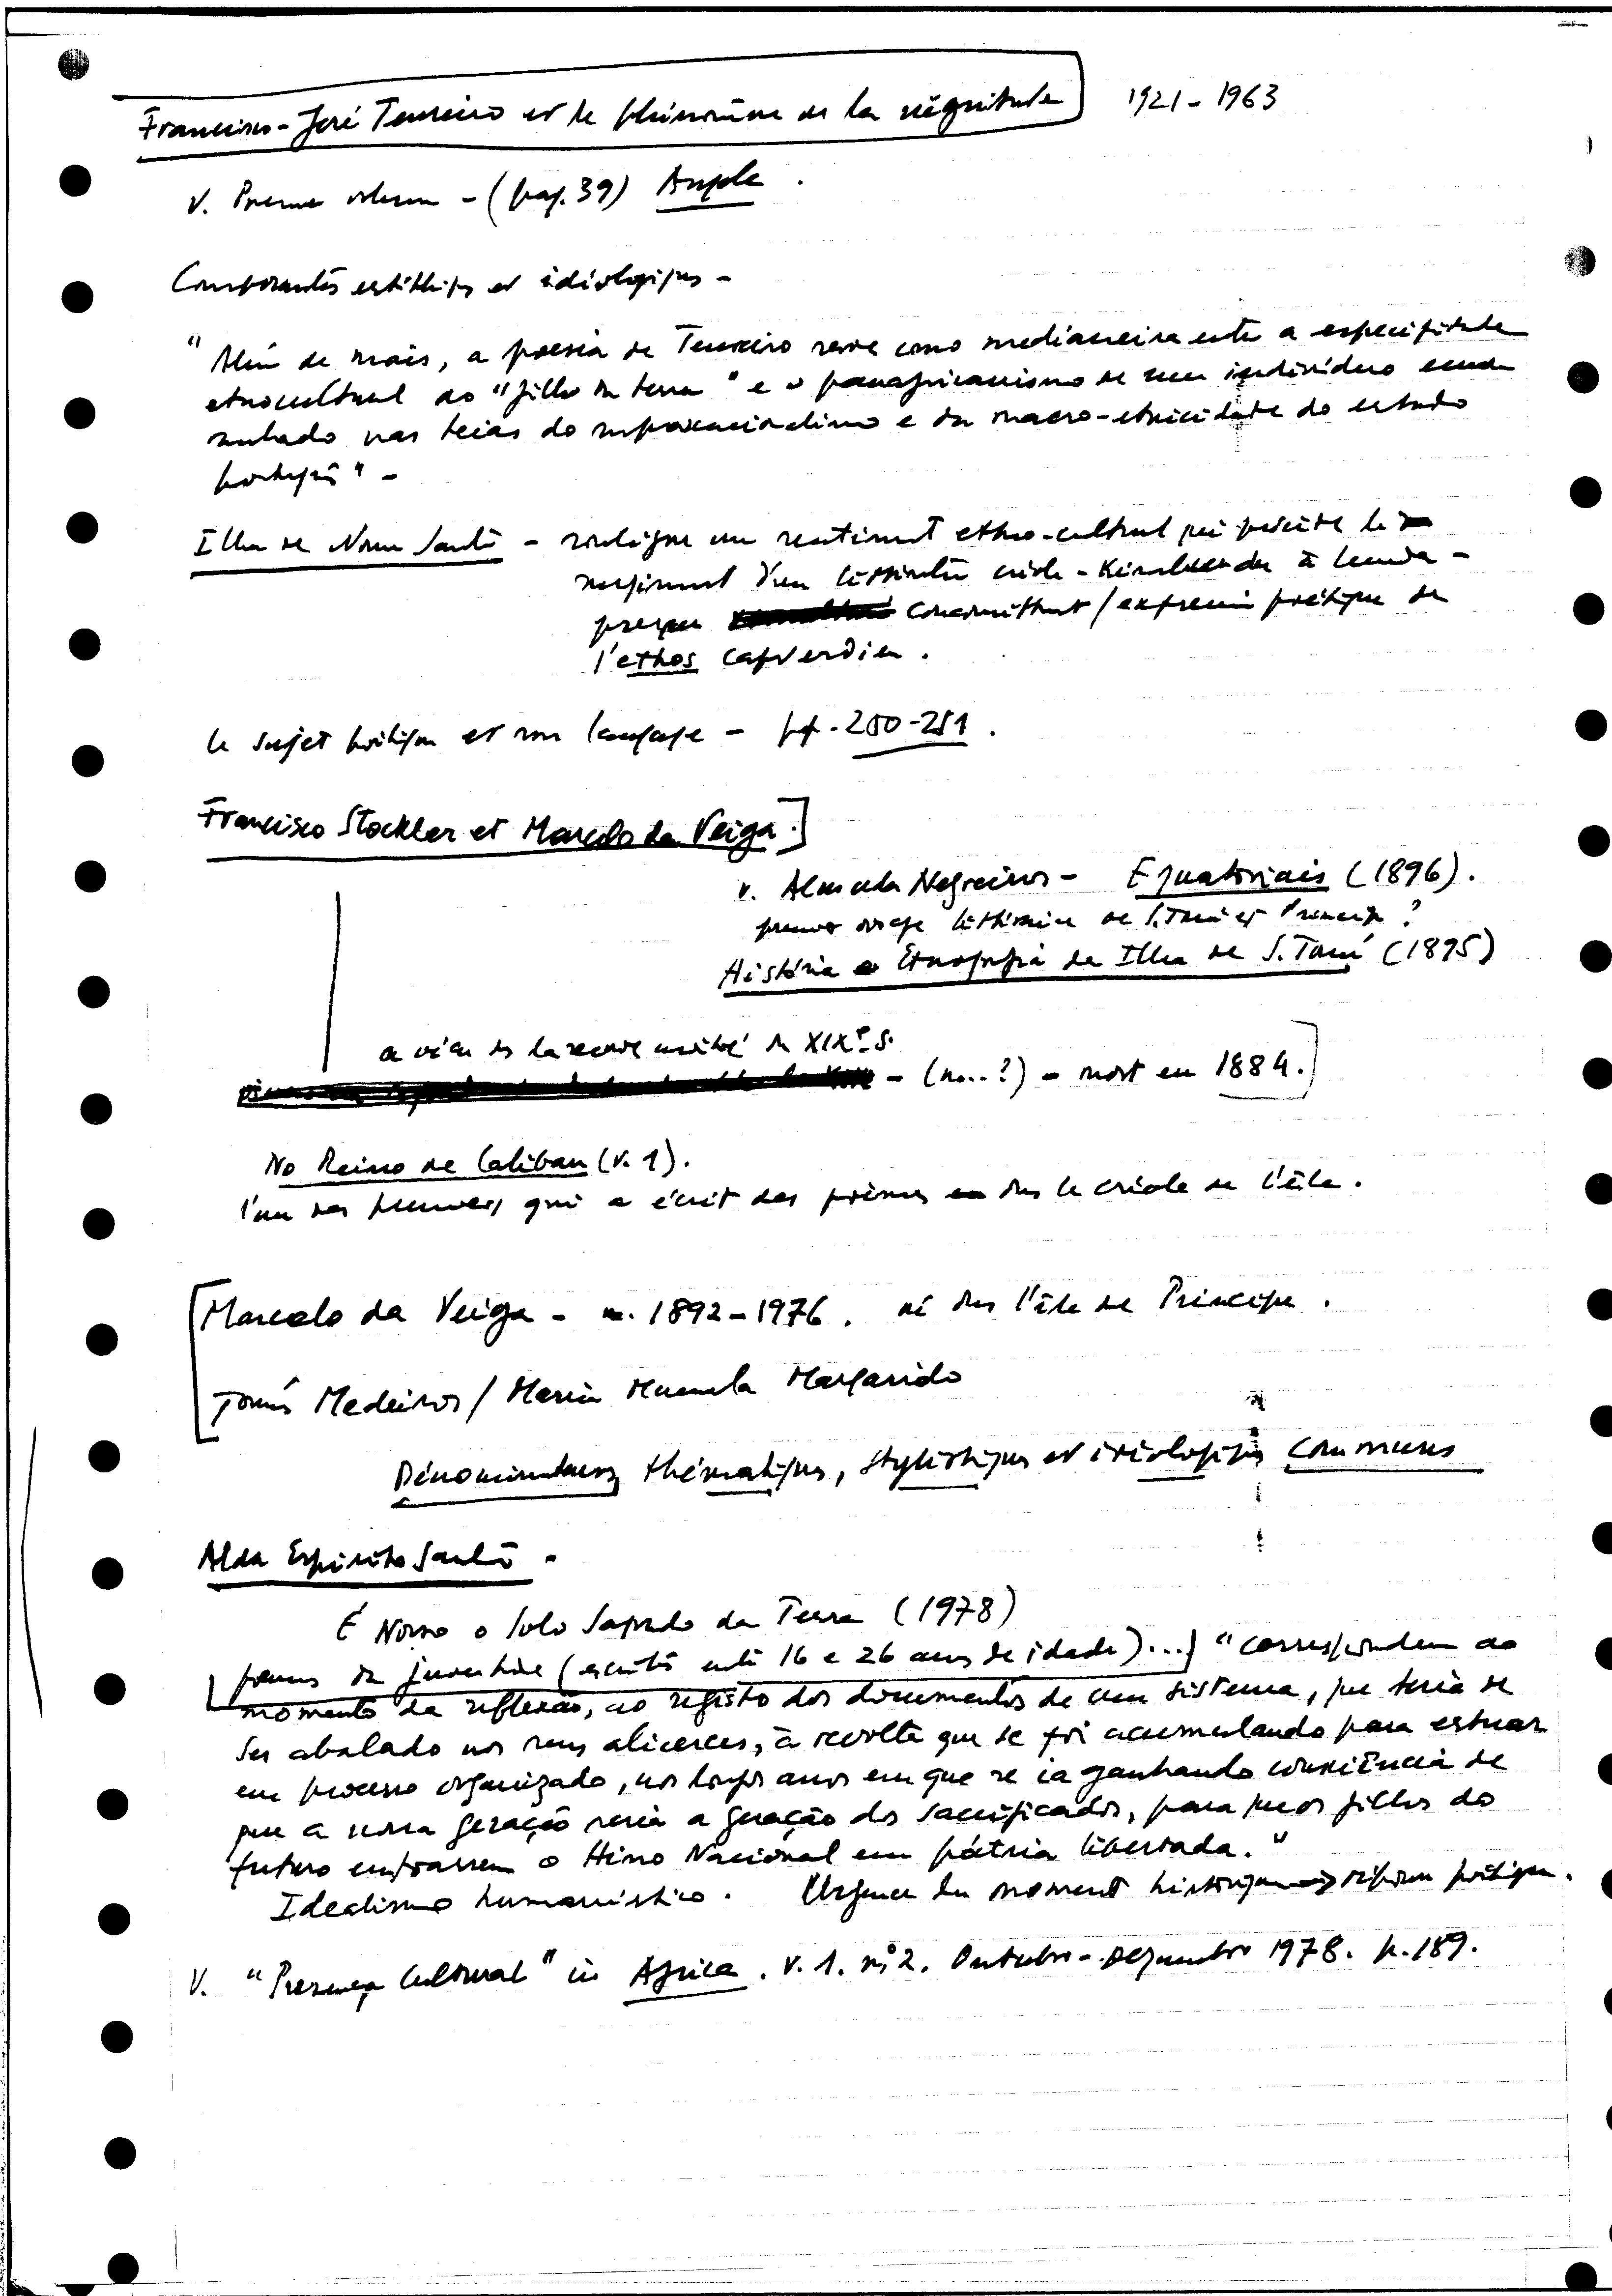 Francisco-José Tenreiro et le phénomène de la négritude 1921-1963
V. Poème - (pag. 39)
Composantes esthétiques et idéologiques -
"Além de mais, a poesia de Tenreiro serve como medianeira entre a especificidade
etnocultural do "filho da terra" e o panafricanismo de um indivíduo
nas teias do supranacionalismo e da macro-etnicidade do estado
português" -
Ilha de Nome Santo - souligne un sentiment ethno-cultural qui précède le
surgissement d'une littérature créole - à Luanda -
presque concomittant / expression poétique de
l'ethos capverdien.
Le sujet poétique et son langage - pp. 250-251.
Francisco Stockler et Marcelo da Veiga.
v. Almada Negreiros - Equatoriais (1896).
premier ouvrage littéraire de S. Tomé et Principe?
História e Etnografia da Ilha de S. Tomé (1895)
a vécu ds la seconde moitié du XIXe S.
- (n...?) - mort en 1884.
No Reino de Caliban (v. 1).
l'un des premiers qui a écrit des poèmes ds le créole de l'île.
Marcelo da Veiga - n. 1892-1976. né ds l'île de Principe.
Tomás Medeiros / Maria Manuela Margarido
Dénominateurs thématiques, stylistiques et idéologiques communs
Alda Espírito Santo -
É Nosso o Solo Sagrado da Terra (1978)
poemas da juventude (escritos entre 16 e 26 anos de idade)...] "correspondem ao
momento da reflexão, ao registo dos documentos de um sistema, que teria de
ser abalado nos seus alicerces, à revolta que se foi acumulando para estuar
em processo organizado, nos longos anos em que se ia ganhando consciência de
que a nossa geração seria a geração dos sacrificados, para que os filhos do
futuro entoassem o Hino Nacional em pátria libertada."
Idealismo humanístico. Urgence du moment historique → poétique.
V. "Presença Cultural" in Africa. v. 1. nº 2. Outubro-Dezembro 1978. p. 189.